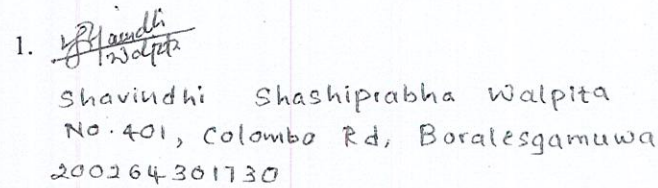 1.
Shavindhi Shashiprabha Walpita
No. 401, Colombo Rd, Boralesgamuwa
200264301730